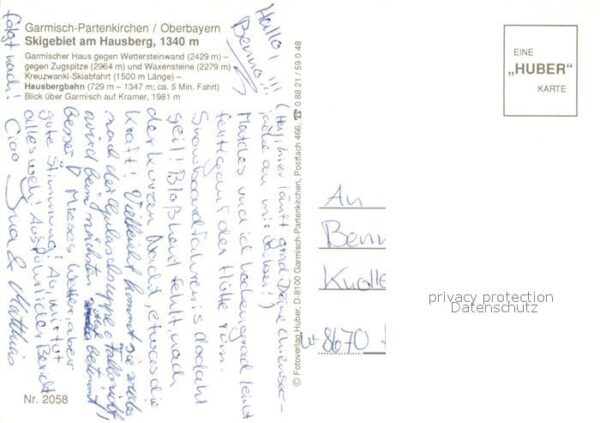 Garmisch-Partenkirchen / Oberbayern
Skigebiet am Hausberg, 1340 m
Garmischer Haus gegen Wettersteinwand (2429 m) –
gegen Zugspitze (2964 m) und Waxensteine (2279 m)
Kreuzwankl-Skiabfahrt (1500 m Länge) –
Hausbergbahn (729 m – 1347 m; ca. 5 Min. Fahrt)
Blick über Garmisch auf Kramer, 1981 m
Nr. 2058
© Fotoverlag Huber, D-8100 Garmisch-Partenkirchen, Postfach 466, ☎ 0 88 21 / 59 0 48
EINE
„HUBER"
KARTE
Hallo!!!
Benno!!
(Hey, hier läuft grad Deine Chiemsee-
an mir
Mattes und ich
fertig auf der Hütte rum.
Snowboardfahren is do daht
geil! Bloß heut fehlt, nach
der kurzen Nacht, etwas die
Kraft! Vielleicht kommt sie wieder
nach der Gulaschsuppe
wird beim nächsten bestimmt
besser! Mieses Wetter, aber
gute Stimmung! Au, mir tut
alles weh! Ausführlicher Bericht
folgt nach! Ciao & Matthias
An
Benn
Knolle
W-8670
privacy protection
Datenschutz